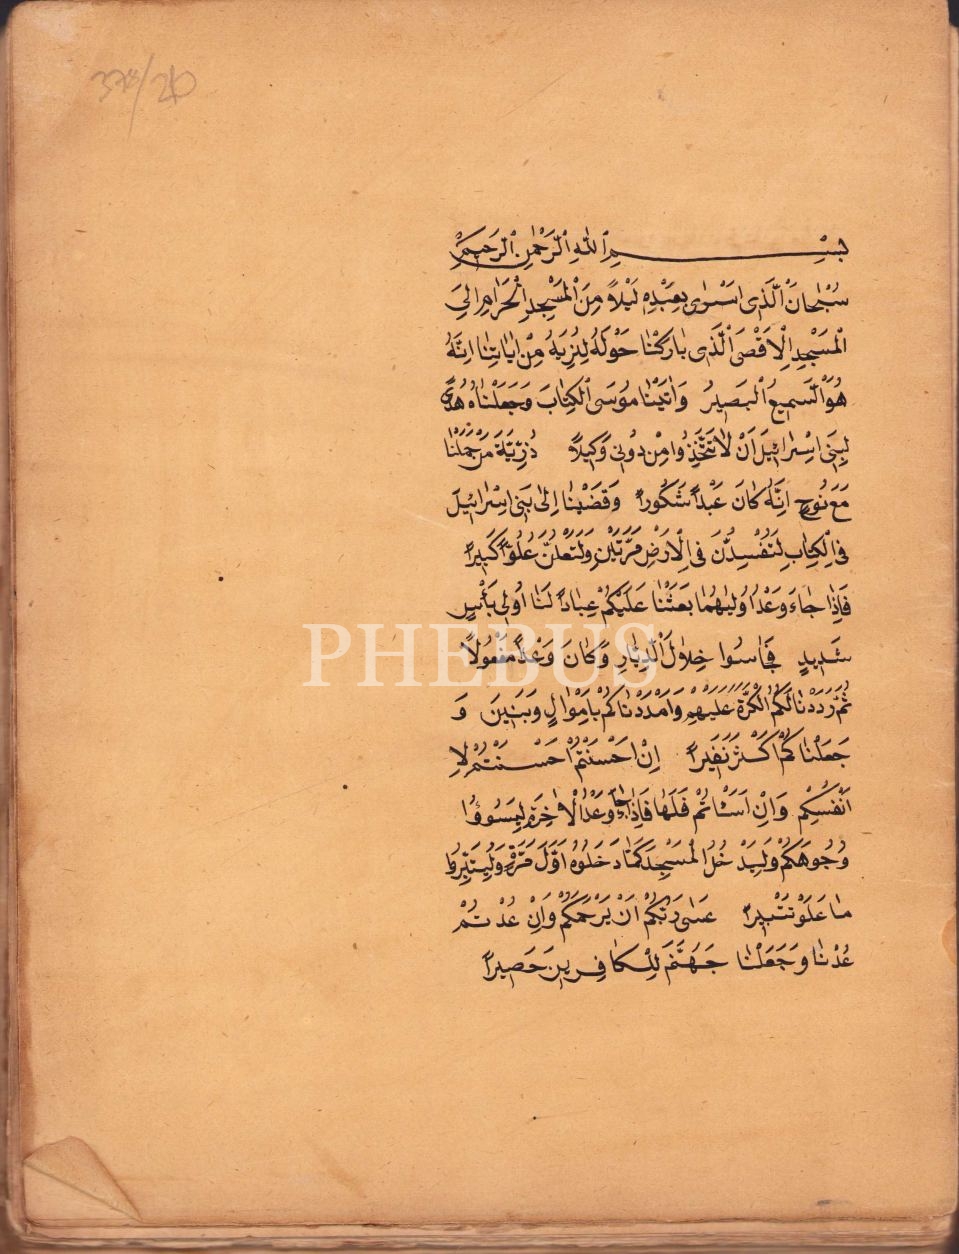 بِسْمِ ٱللّٰهِ ٱلرَّحْمٰنِ ٱلرَّحِيمِ
سُبْحَانَ ٱلَّذِى اَسْرٰى بِعَبْدِهِ لَيْلاً مِنَ ٱلْمَسْجِدِ ٱلْحَرَامِ اِلَى
ٱلْمَسْجِدِ ٱلْاَقْصَى ٱلَّذِى بَارَكْنَا حَوْلَهُ لِنُرِيَهُ مِنْ اٰيَاتِنَا اِنَّهُ
هُوَ ٱلسَّمِيعُ ٱلْبَصِيرُ وَاٰتَيْنَا مُوسَى ٱلْكِتَابَ وَجَعَلْنَاهُ هُدًى
لِبَنِى اِسْرَائِيلَ اَنْ لَا تَتَّخِذُوا مِنْ دُونِى وَكِيلاً ذُرِّيَّةَ مَنْ حَمَلْنَا
مَعَ نُوحٍ اِنَّهُ كَانَ عَبْداً شَكُوراً وَقَضَيْنَا اِلٰى بَنِى اِسْرَائِيلَ
فِى ٱلْكِتَابِ لَتُفْسِدُنَّ فِى ٱلْاَرْضِ مَرَّتَيْنِ وَلَتَعْلُنَّ عُلُوّاً كَبِيراً
فَاِذَا جَاءَ وَعْدُ اُولٰيهُمَا بَعَثْنَا عَلَيْكُمْ عِبَاداً لَنَا اُولِى بَأْسٍ
شَدِيدٍ فَجَاسُوا خِلَالَ ٱلدِّيَارِ وَكَانَ وَعْداً مَفْعُولاً
ثُمَّ رَدَدْنَا لَكُمُ ٱلْكَرَّةَ عَلَيْهِمْ وَاَمْدَدْنَاكُمْ بِاَمْوَالٍ وَبَنِينَ وَ
جَعَلْنَاكُمْ اَكْثَرَ نَفِيراً اِنْ اَحْسَنْتُمْ اَحْسَنْتُمْ لِاَ
اَنْفُسِكُمْ وَاِنْ اَسَأْتُمْ فَلَهَا فَاِذَا جَاءَ وَعْدُ ٱلْاٰخِرَةِ لِيَسُوءُا
وُجُوهَكُمْ وَلِيَدْخُلُ ٱلْمَسْجِدَ كَمَا دَخَلُوهُ اَوَّلَ مَرَّةٍ وَلِيُتَبِّرُوا
مَا عَلَوْ تَتْبِيراً عَسٰى رَبُّكُمْ اَنْ يَرْحَمَكُمْ وَاِنْ عُدْتُمْ
عُدْنَا وَجَعَلْنَا جَهَنَّمَ لِلْكَافِرِينَ حَصِيراً
PHEBUS